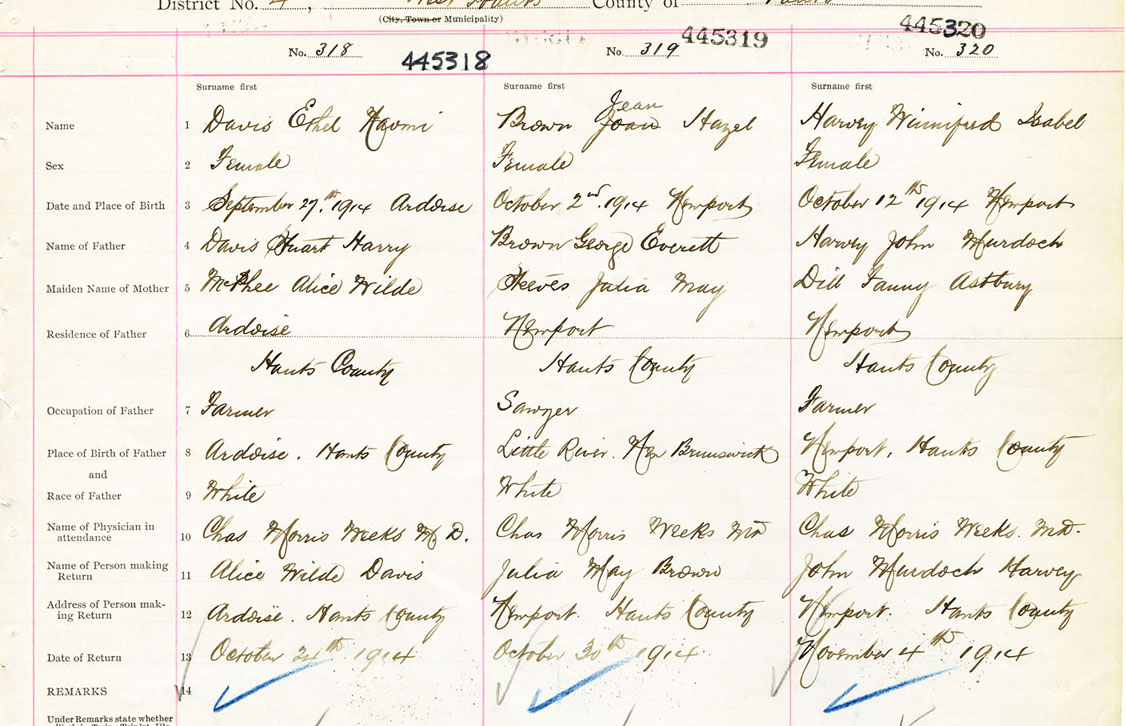 District No. 4, West Hants County of Hants
(City, Town or Municipality)
445320
445319
No. 318 No. 319 No. 320
445318
Surname first Surname first Surname first
Jean
Name 1 Davis Ethel Naomi Brown Joan Hazel Harvey Winnifred Isabel
Sex 2 Female Female Female
Date and Place of Birth 3 September 27.th 1914 Ardoise October 2nd. 1914 Newport October 12th 1914 Newport
Name of Father 4 Davis Stuart Harry Brown George Everett Harvey John Murdoch
Maiden Name of Mother 5 McPhee Alice Wilde Steeves Julia May Dill Fanny Astbury
Residence of Father 6 Ardoise Newport Newport
Hants County Hants County Hants County
Occupation of Father 7 Farmer Sawyer Farmer
Place of Birth of Father 8 Ardoise. Hants County Little River. New Brunswick Newport. Hants County
and
Race of Father 9 White White White
Name of Physician in
attendance 10 Chas Morris Weeks M D. Chas Morris Weeks MD Chas Morris Weeks. MD.
Name of Person making
Return 11 Alice Wilde Davis Julia May Brown John Murdoch Harvey
Address of Person mak-
ing Return 12 Ardoise. Hants County Newport. Hants County Newport. Hants County
Date of Return 13 October 24th 1914 October 30th 1914 November 4th 1914
REMARKS 14
Under Remarks state whether